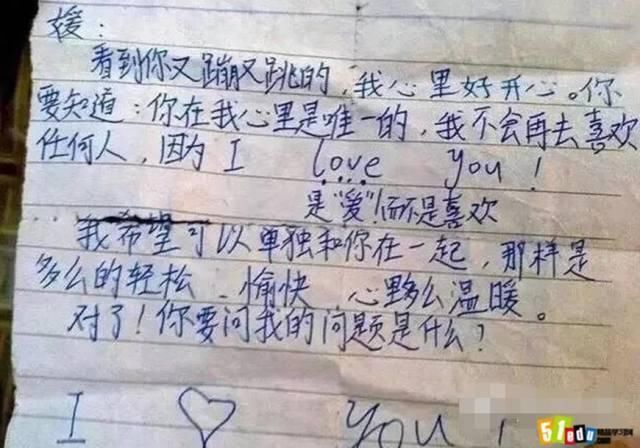 媛：
看到你又蹦又跳的，我心里好开心。你
要知道：你在我心里是唯一的，我不会再去喜欢
任何人，因为 I love you！
是“爱”！而不是喜欢
我希望可以单独和你在一起，那样是
多么的轻松、愉快、心里多么温暖。
对了！你要问我的问题是什么？
I ♡ you！
51edu 精品学习网